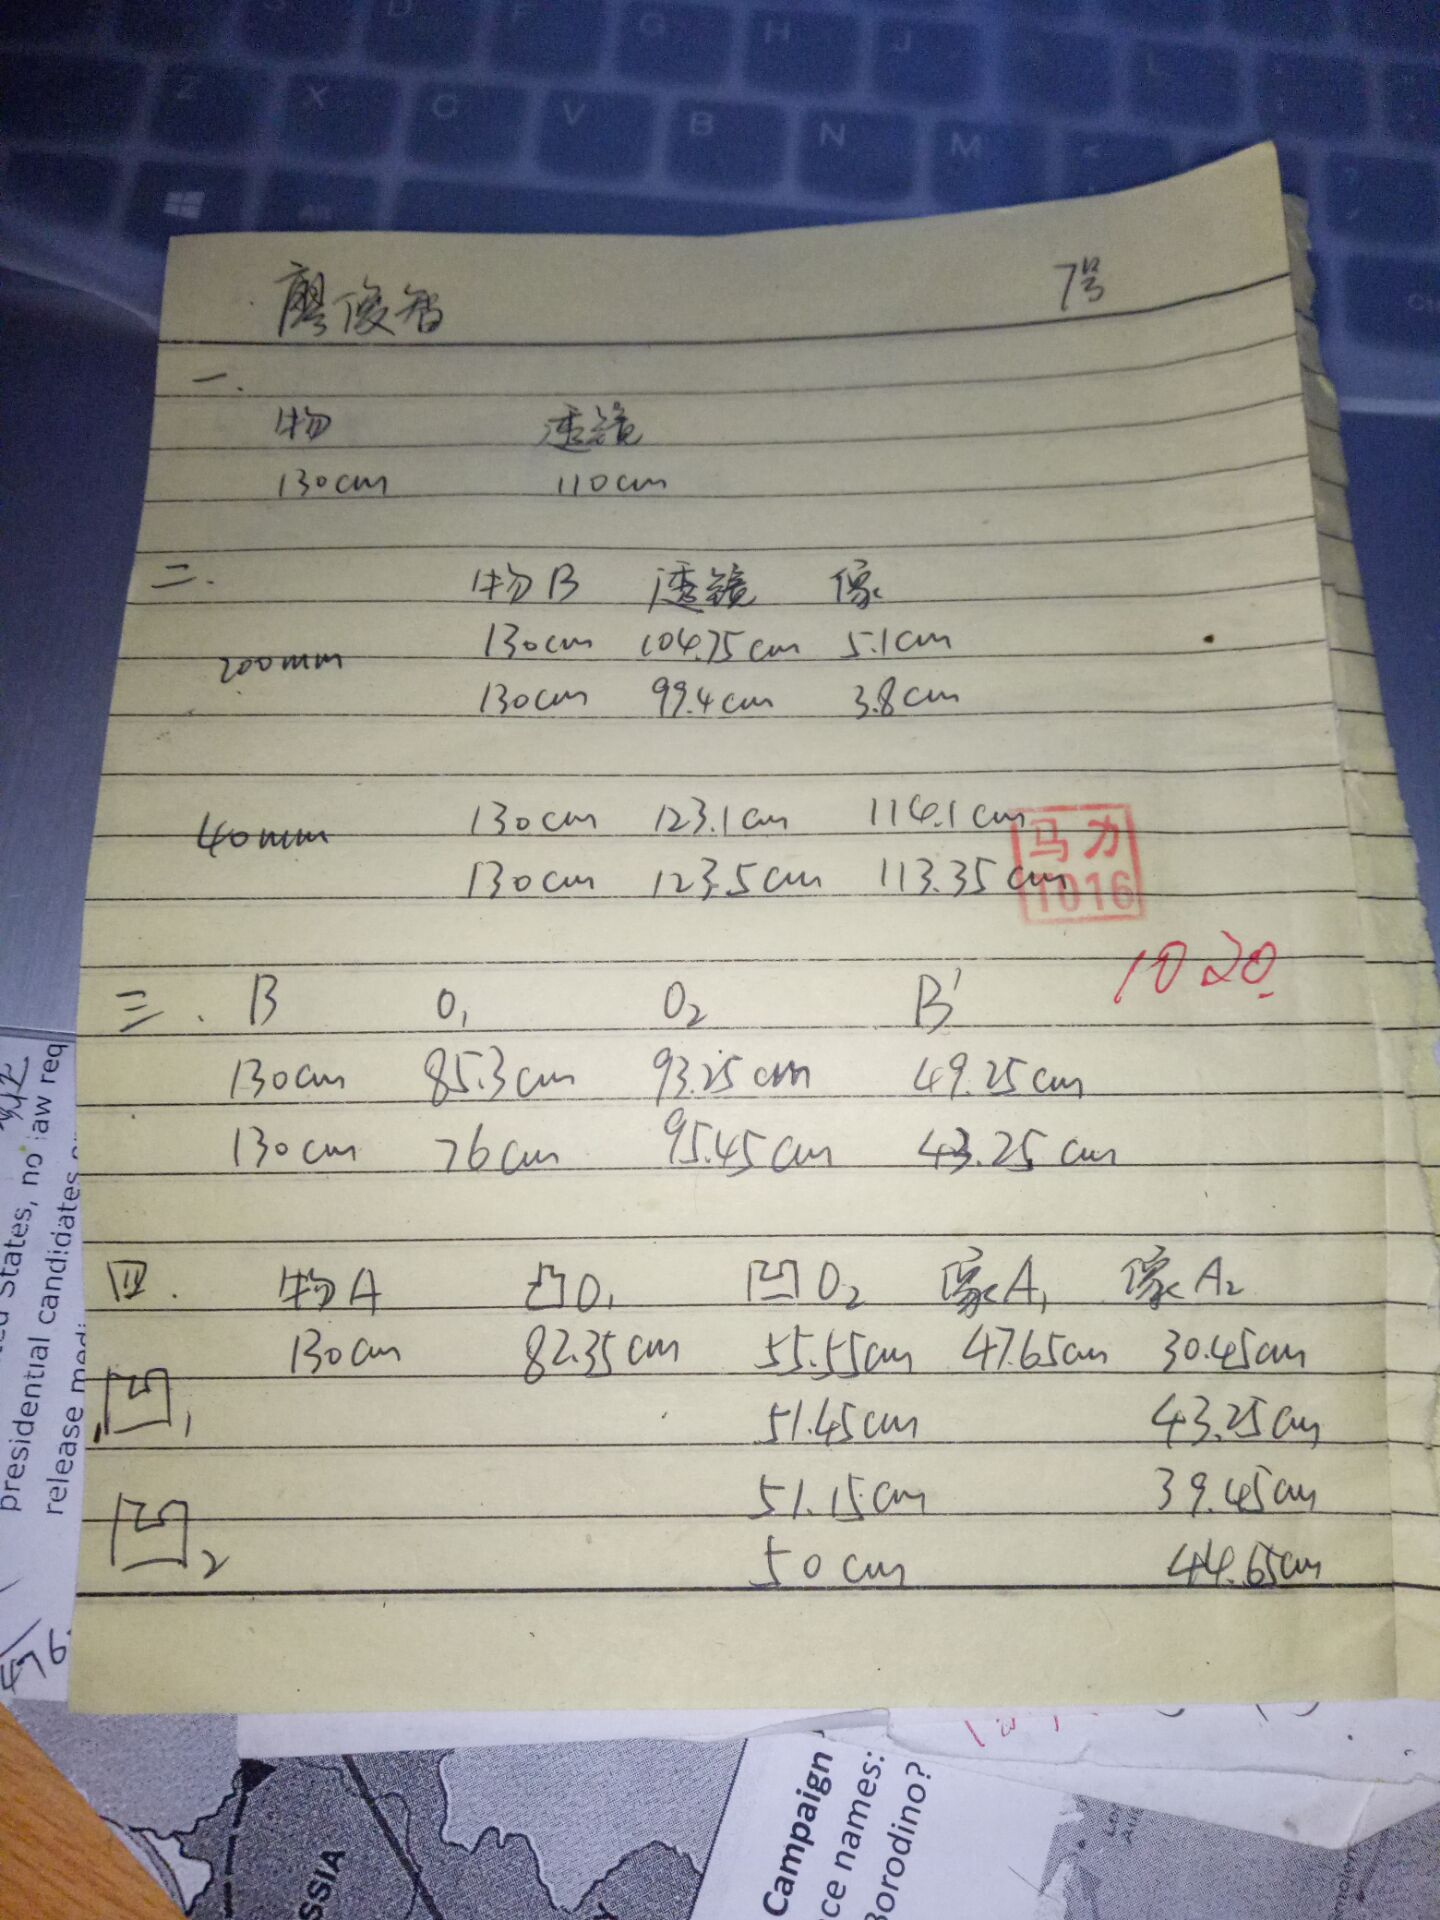 D F G H J L
Z X C V B N M
廖俊智 7号
一.
物 透镜
130cm 110cm
二. 物B 透镜 像
200mm 130cm 104.75cm 5.1cm
130cm 99.4cm 3.8cm
40mm 130cm 123.1cm 114.1cm
130cm 123.5cm 113.35cm
马力
1016
1020
三. B O₁ O₂ B'
130cm 85.3cm 93.25cm 49.25cm
130cm 76cm 95.45cm 43.25cm
四. 物A 凸O₁ 凹O₂ 像A₁ 像A₂
130cm 82.35cm 55.55cm 47.65cm 30.45cm
凹₁ 51.45cm 43.25cm
51.15cm 39.45cm
凹₂ 50cm 44.65cm
States, no law req
presidential candidates
release
476.
SSIA
Campaign
ce names:
Borodino?